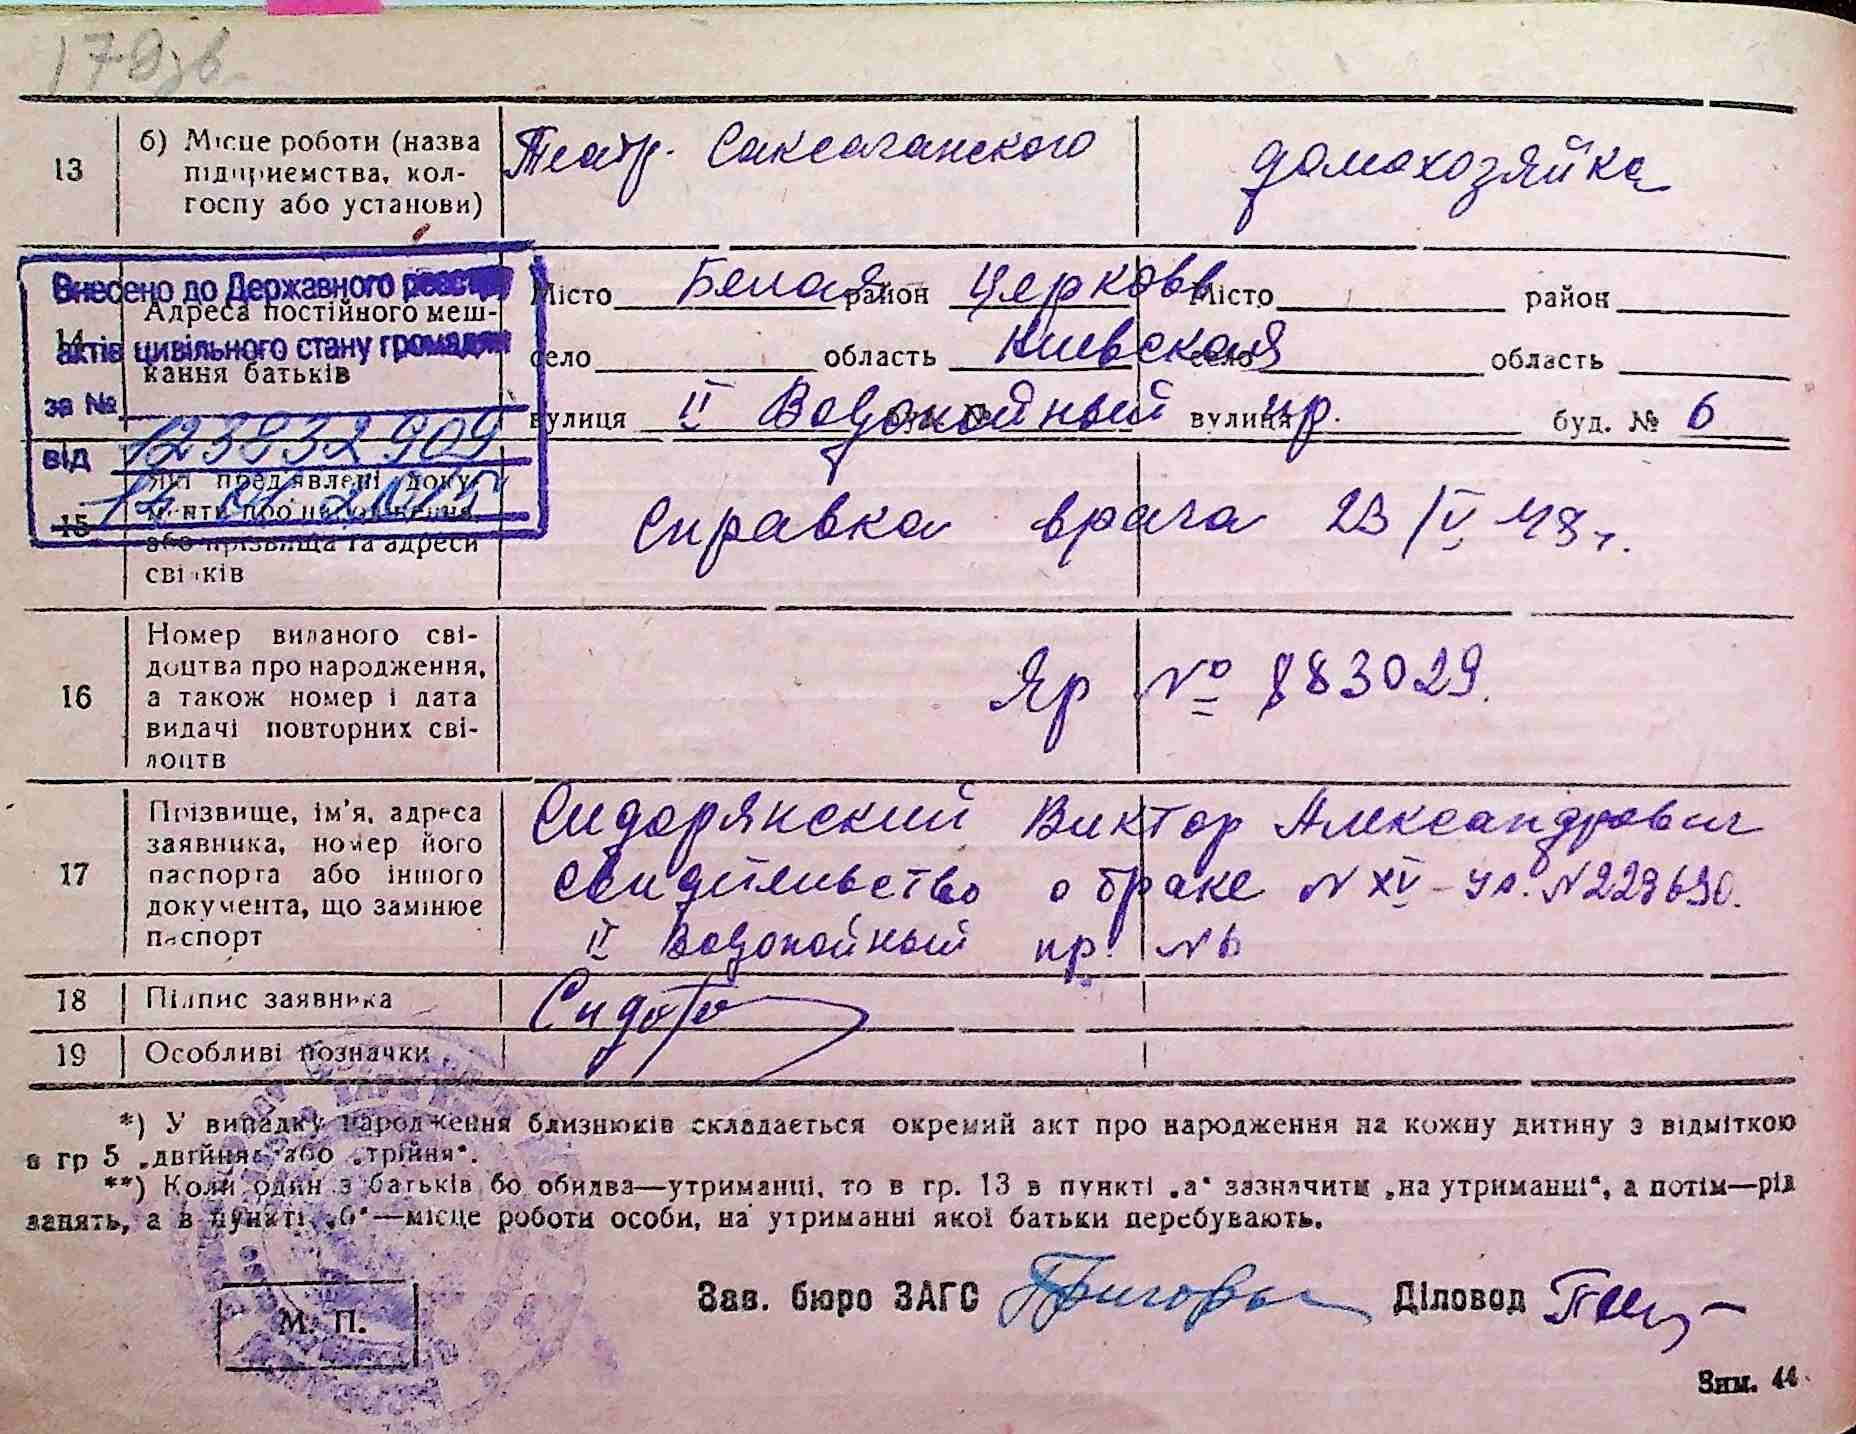 179 зв.
13
б) Місце роботи (назва
підприємства, кол-
госпу або установи)
Театр. Саксаганского
домохозяйка
Внесено до Державного реєстру
актів цивільного стану громадян
за № 123932909
від
14
Адреса постійного меш-
кання батьків
Місто Белая район Церковь Місто район
село область Киевская село область
вулиця II Водопойный буд. № вулиця пр. буд. № 6
15
які пред'явлені доку-
менти про народження
або прізвища та адреси
свідків
Справка врача 23/V 48 г.
16
Номер виданого сві-
доцтва про народження,
а також номер і дата
видачі повторних сві-
доцтв
Яр № 883029.
17
Прізвище, ім'я, адреса
заявника, номер його
паспорта або іншого
документа, що замінює
паспорт
Сидорянский Виктор Александрович
Свидительство о браке N XV-
II Водопойный пр. N 6
18
Підпис заявника
19
Особливі позначки
*) У випадку народження близнюків складається окремий акт про народження на кожну дитину з відміткою
в гр 5 „двійня" або „трійня".
**) Коли один з батьків або обидва—утриманці, то в гр. 13 в пункті „а" зазначити „на утриманні", а потім—рід
занять, а в пункті „б"—місце роботи особи, на утриманні якої батьки перебувають.
Зав. бюро ЗАГС
Діловод
М. П.
Зам. 44